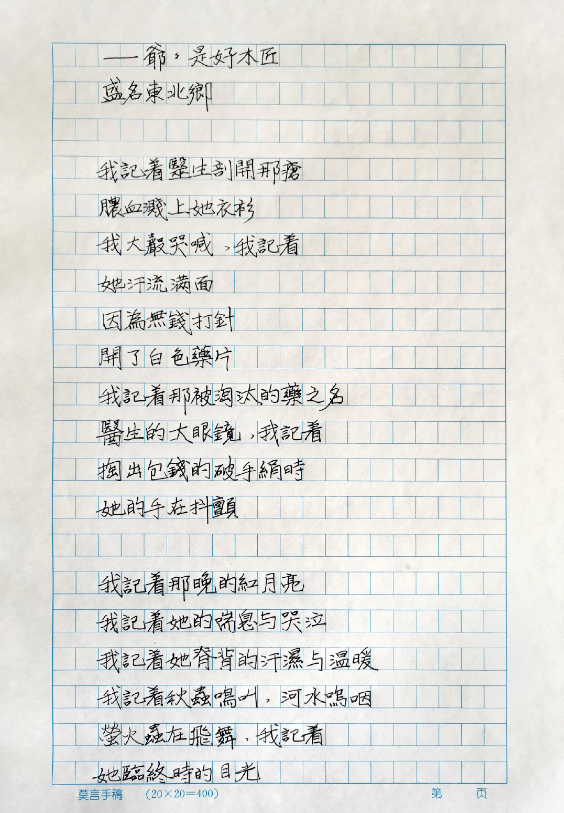 ——爺爺是好木匠
盛名東北鄉
我記着醫生剖開那瘡
膿血濺上她衣衫
我大聲哭喊，我記着
她汗流滿面
因為無錢打針
開了白色藥片
我記着那被淘汰的藥之名
醫生的大眼鏡，我記着
掏出包錢的破手絹時
她的手在抖顫
我記着那晚的紅月亮
我記着她的喘息与哭泣
我記着她脊背的汗濕与温暖
我記着秋蟲鳴叫，河水嗚咽
螢火蟲在飛舞、我記着
她臨終時的目光
莫言手稿 （20×20＝400） 第 页